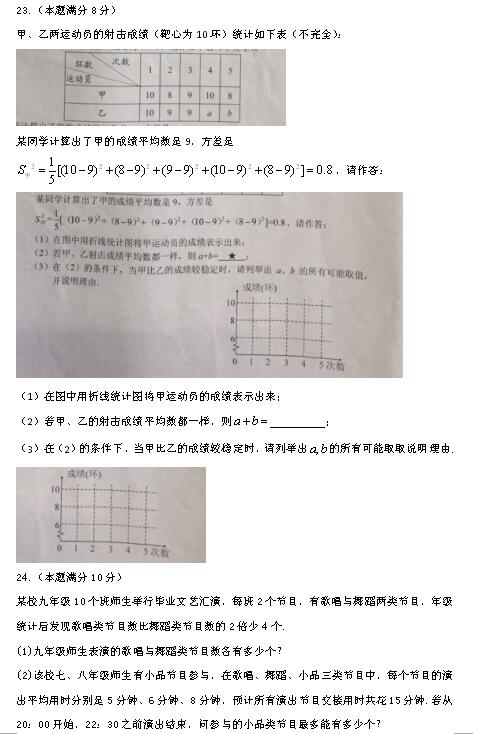 23.（本题满分 8 分）
甲、乙两运动员的射击成绩（靶心为 10 环）统计如下表（不完全）：
环数 次数 运动员 1 2 3 4 5
甲 10 8 9 10 8
乙 10 9 9 a b
某同学计算出了甲的成绩平均数是 9，方差是
S甲²=1/5[(10－9)²+(8－9)²+(9－9)²+(10－9)²+(8－9)²]＝0.8，请作答：
某同学计算出了甲的成绩平均数是 9，方差是
S甲²=1/5[(10－9)²+(8－9)²+(9－9)²+(10－9)²+(8－9)²]=0.8，请作答：
(1) 在图中用折线统计图将甲运动员的成绩表示出来；
(2) 若甲、乙射击成绩平均数都一样，则 a+b= ★ ；
(3) 在（2）的条件下，当甲比乙的成绩较稳定时，请列举出 a、b 的所有可能取值，
并说明理由.
成绩(环)
10
8
6
0 1 2 3 4 5 次数
（1）在图中用折线统计图将甲运动员的成绩表示出来；
（2）若甲、乙的射击成绩平均数都一样，则 a+b=__________；
（3）在（2）的条件下，当甲比乙的成绩较稳定时，请列举出 a,b 的所有可能取取说明理由.
成绩(环)
10
8
6
0 1 2 3 4 5 次数
24.（本题满分 10 分）
某校九年级 10 个班师生举行毕业文艺汇演，每班 2 个节目，有歌唱与舞蹈两类节目，年级
统计后发现歌唱类节目数比舞蹈类节目数的 2 倍少 4 个.
(1)九年级师生表演的歌唱与舞蹈类节目数各有多少个？
(2)该校七、八年级师生有小品节目参与，在歌唱、舞蹈、小品三类节目中，每个节目的演
出平均用时分别是 5 分钟、6 分钟、8 分钟，预计所有演出节目交接用时共花 15 分钟.若从
20：00 开始，22：30 之前演出结束，问参与的小品类节目最多能有多少个？